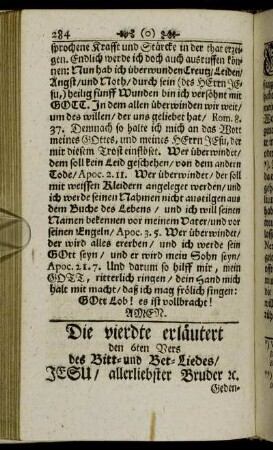 284 (o)
sprochene Krafft und Stärcke in der that erzei-
gen. Endlich werde ich doch auch ausruffen kön-
nen: Nun hab ich überwunden Creutz/ Leiden/
Angst/ und Noth/ durch sein (des HErrn JE-
su/) heilig fünff Wunden bin ich versöhnt mit
GOTT. In dem allen überwinden wir weit/
um des willen/ der uns geliebet hat/ Rom. 8.
37. Demnach so halte ich mich an das Wort
meines GOttes, und meines HErrn JEsu, der
mir diesen Trost einflößet. Wer überwindet/
dem soll kein Leid geschehen/ von dem andern
Tode/ Apoc. 2. 11. Wer überwindet/ der soll
mit weissen Kleidern angeleget werden/ und
ich werde seinen Nahmen nicht austilgen aus
dem Buche des Lebens/ und ich will seinen
Namen bekennen vor meinem Vater/ und vor
seinen Engeln/ Apoc. 3. 5. Wer überwindet/
der wird alles ererben/ und ich werde sein
GOtt seyn/ und er wird mein Sohn seyn/
Apoc. 21. 7. Und darum so hilff mir, mein
GOTT, ritterlich ringen/ dein Hand mich
halt mit macht/ daß ich mag frölich singen:
GOtt Lob! es ist vollbracht!
AMEN.
Die vierdte erläutert
den 6ten Vers
des Bitt- und Bet-Liedes/
JESU/ allerliebster Bruder ꝛc.
Geden-